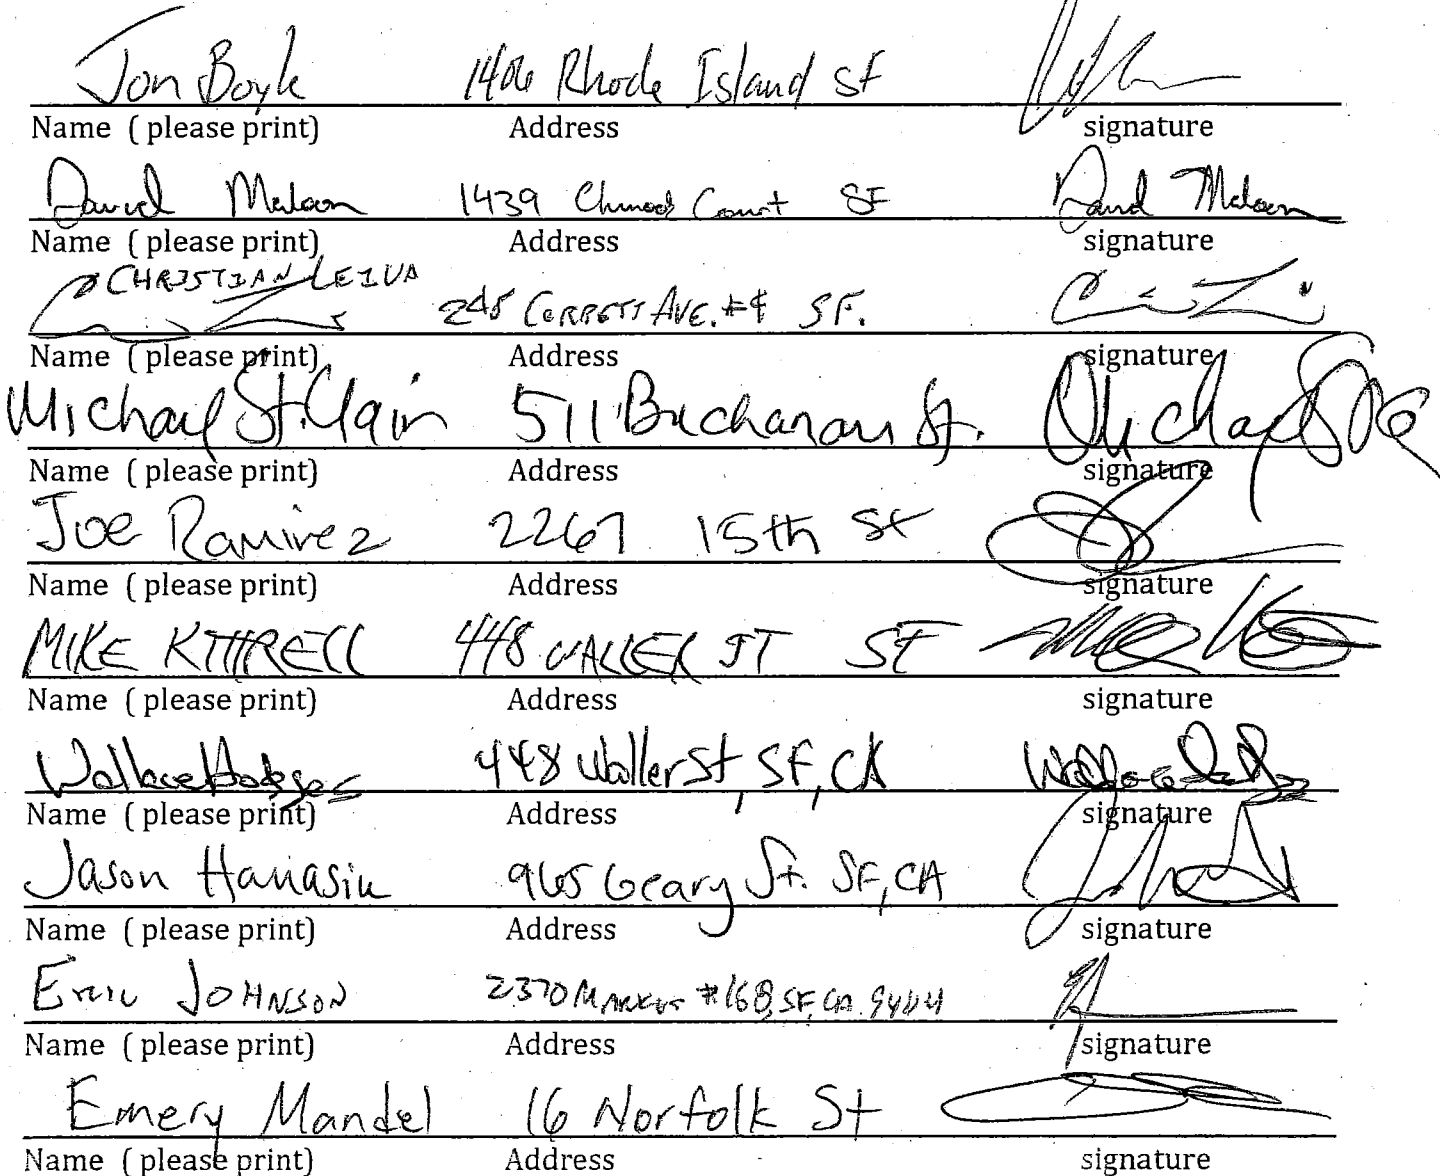 Jon Boyle 1406 Rhode Island SF
Name ( please print) Address signature
David 1439 Court SF David
Name ( please print) Address signature
CHRISTIAN LEIVA
248 CORBETT AVE. #4 SF.
Name ( please print) Address signature
Michael St. Clair 511 Buchanan St. Michael
Name ( please print) Address signature
Joe Ramirez 2267 15th St
Name ( please print) Address signature
MIKE KITTRELL 448 WALLER ST SF
Name ( please print) Address signature
Wallace Hodges 448 Waller St, SF, CA Wallace
Name ( please print) Address signature
Jason Hanasik 965 Geary St. SF, CA
Name ( please print) Address signature
Eric JOHNSON 2370 MARKET #168, SF, CA
Name ( please print) Address signature
Emery Mandel 16 Norfolk St
Name ( please print) Address signature